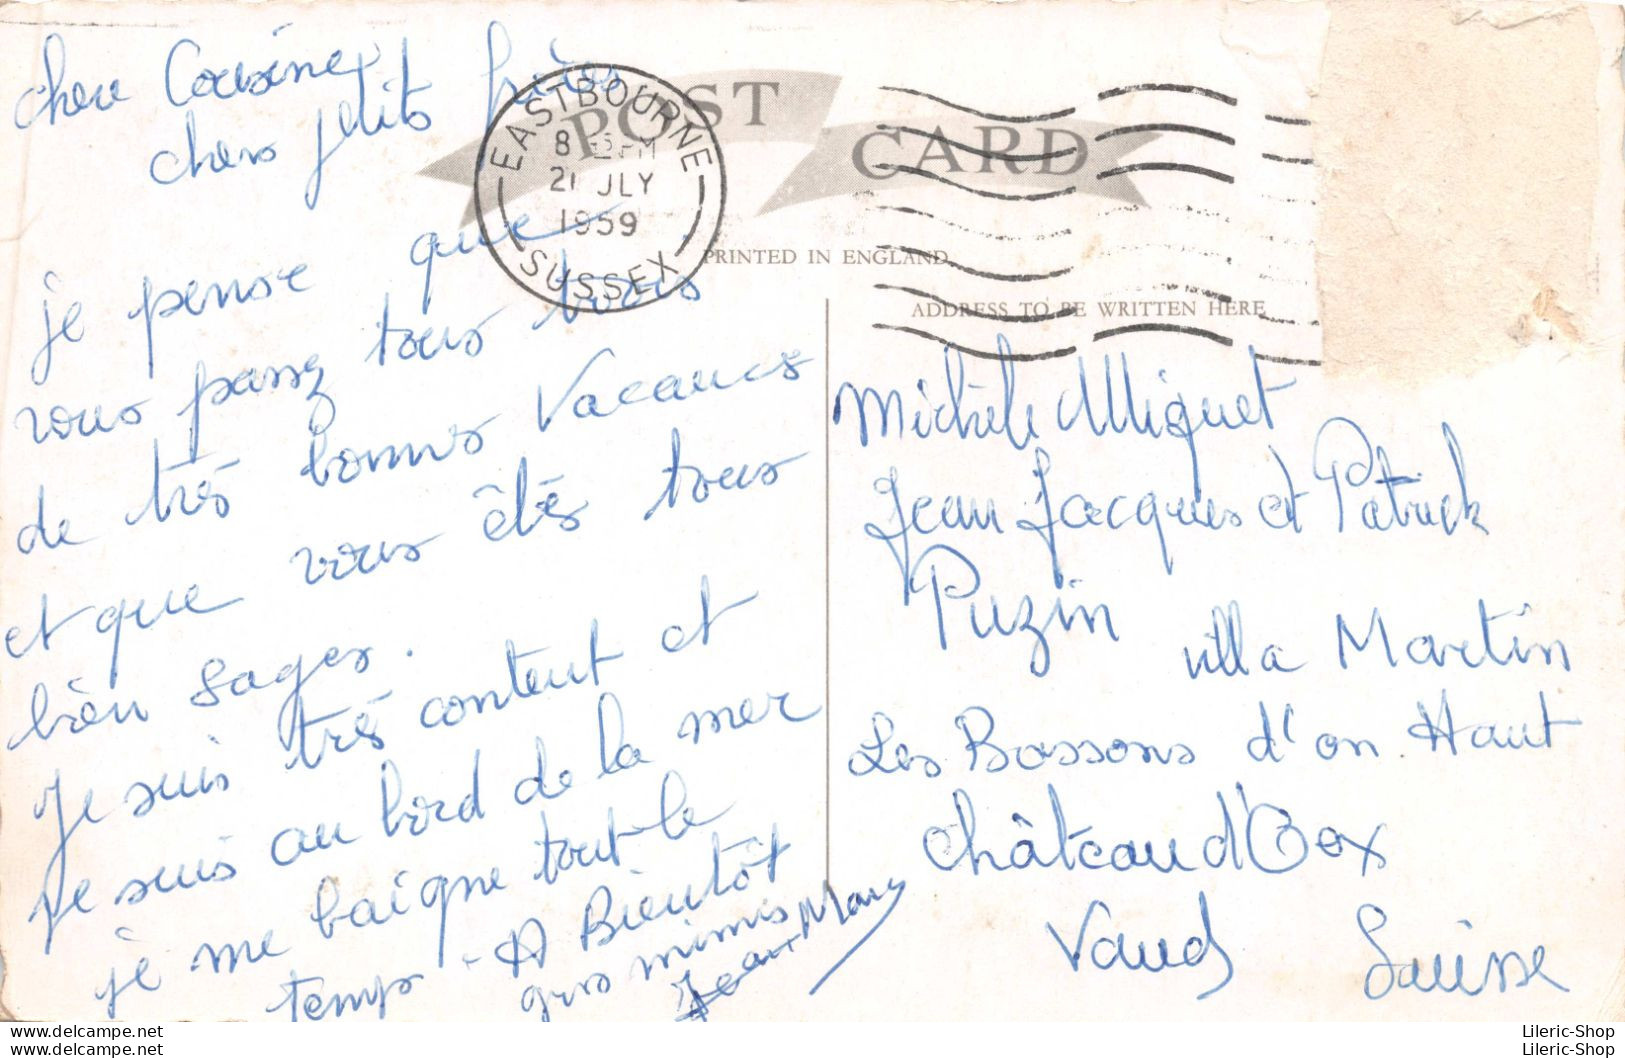 chere Cousine
chers ptits frères
je pense que
vous passez tous trois
de très bonnes Vacances
et que vous êtes tous
bien sages.
Je suis très content et
je suis au bord de la mer
je me baigne tout le
temps - A Bientôt
gros mimis
Jean Mary
POST CARD
EASTBOURNE
8
21 JLY
1959
SUSSEX
PRINTED IN ENGLAND
ADDRESS TO BE WRITTEN HERE
Michèle Miquet
Jean Jacques et Patrick
Puzin
villa Martin
Les Bossons d'en Haut
château d'Oex
Vaud Suisse
Lileric-delcampe.net
Lileric-delcampe.net
Lileric-Shop
Lileric-Shop